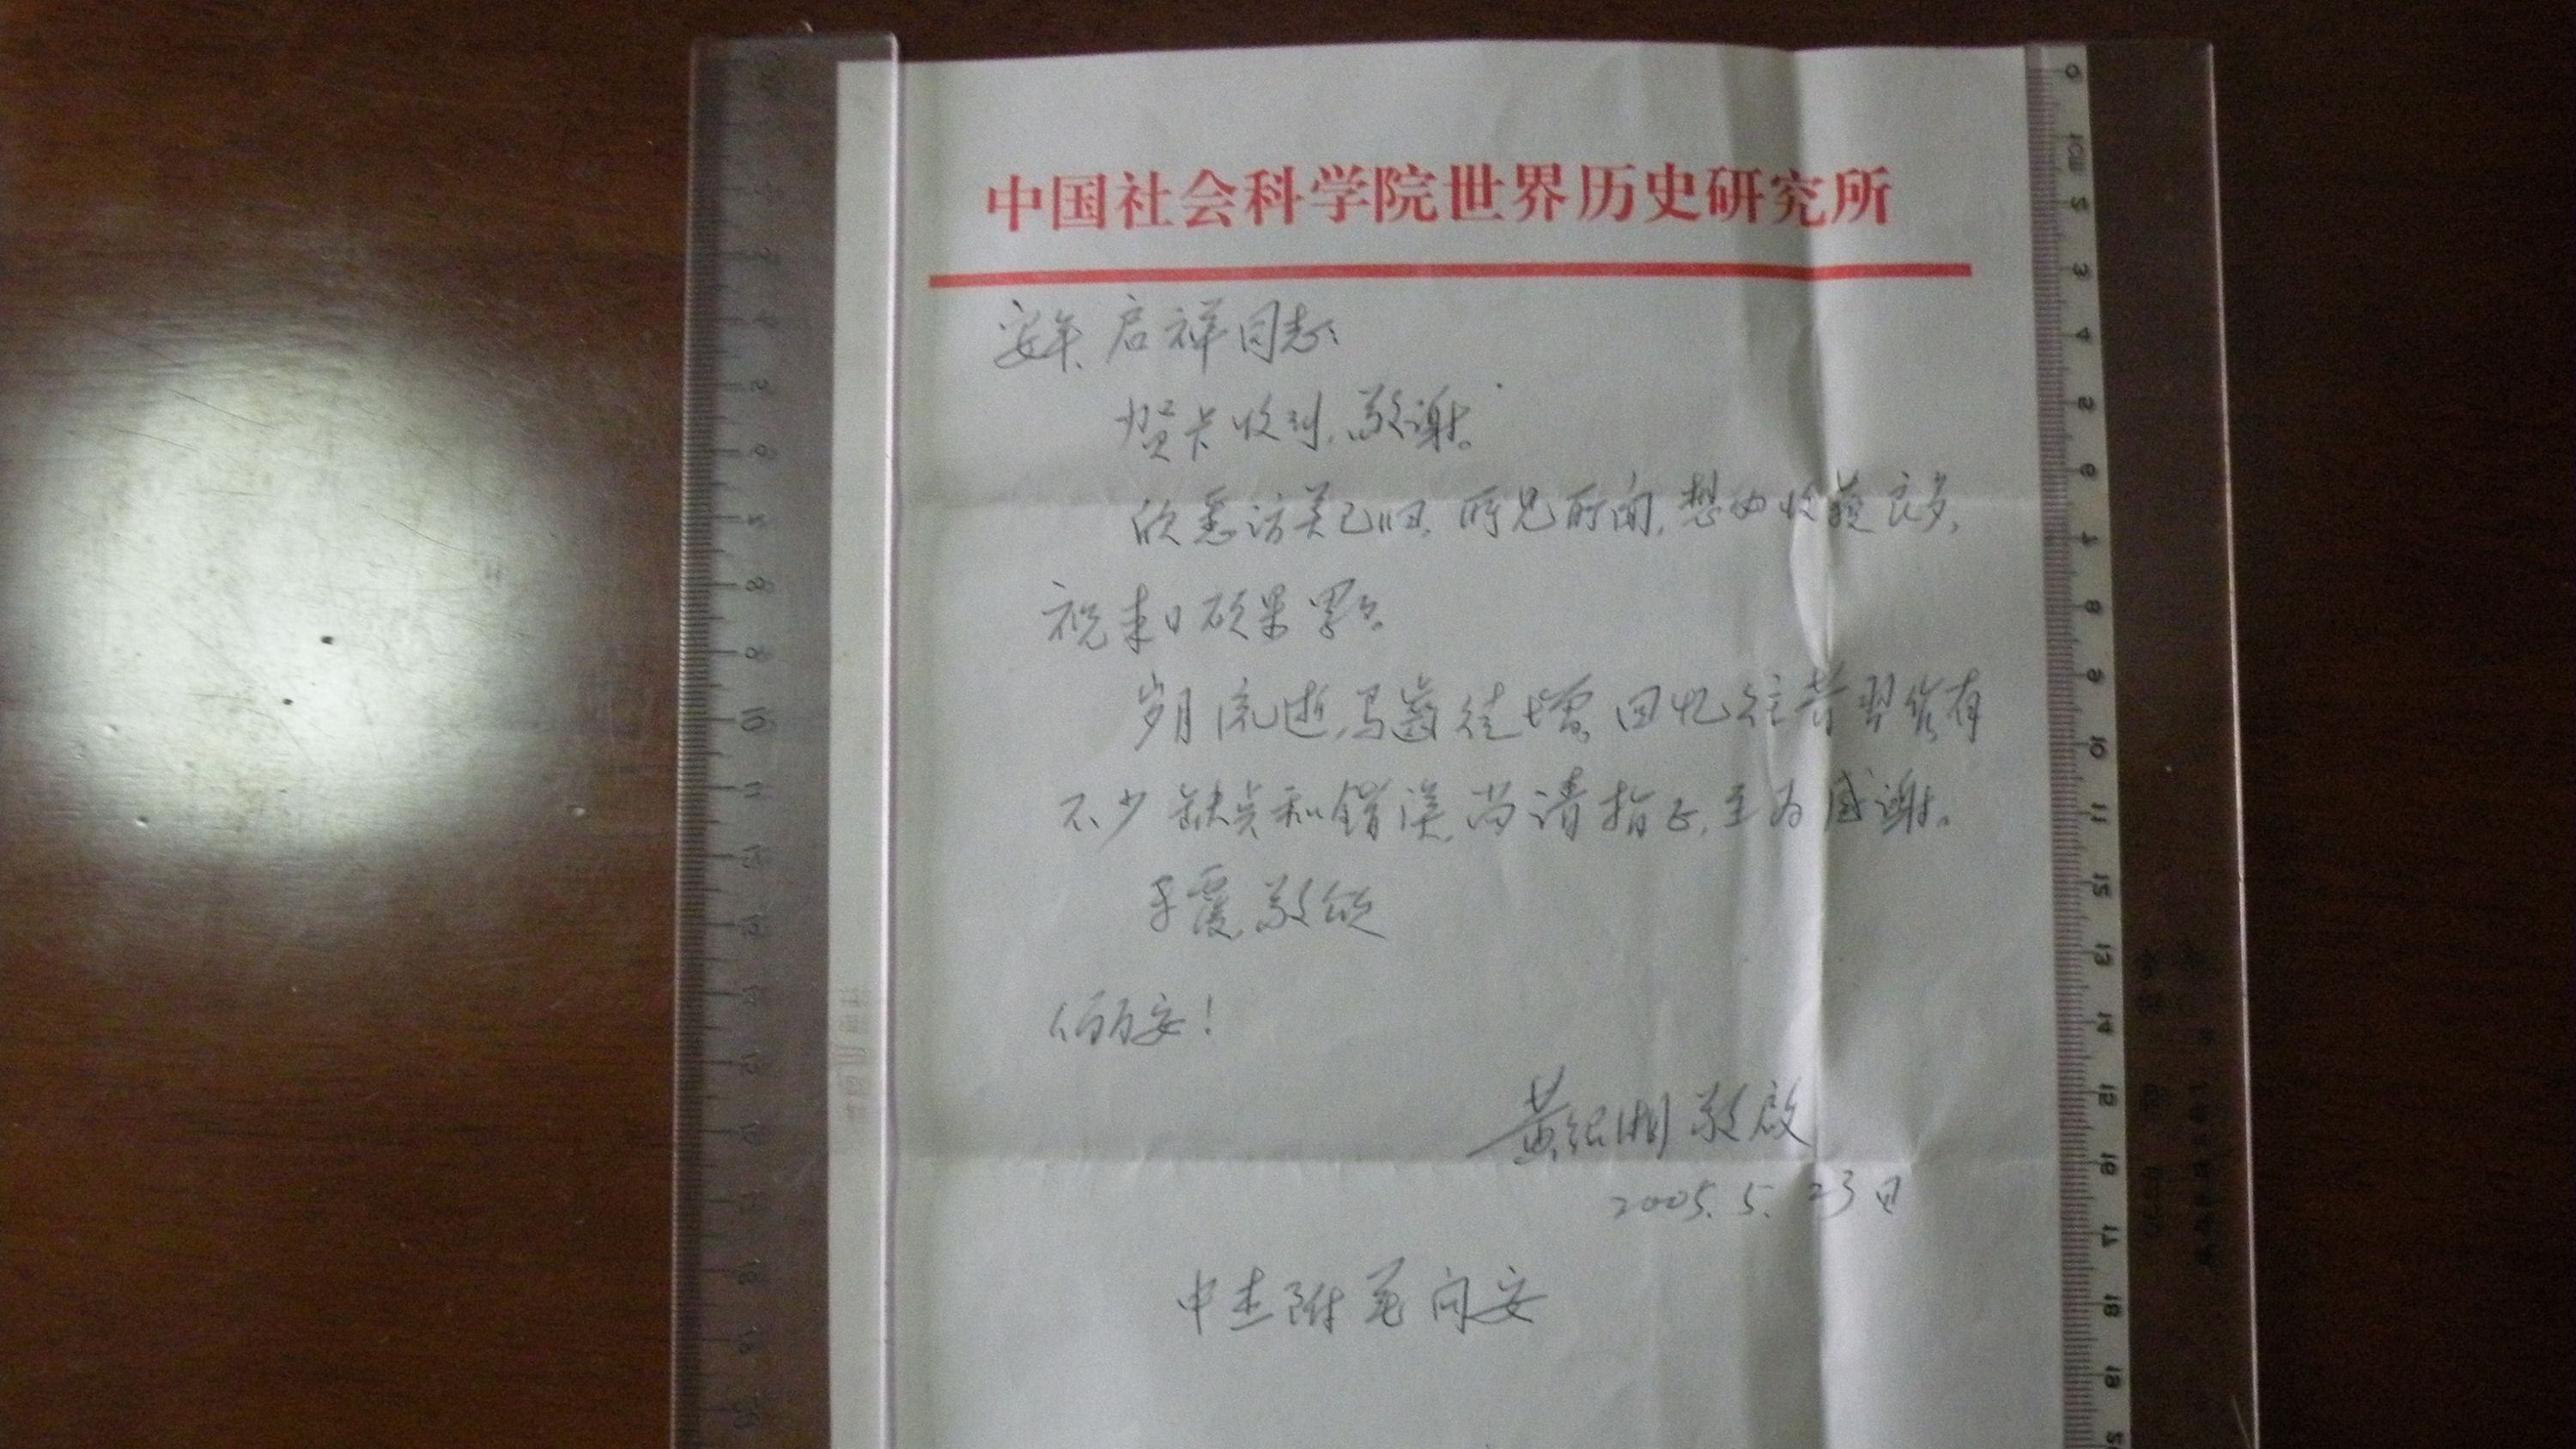 中国社会科学院世界历史研究所
安年、启祥同志:
贺卡收到,敬谢。
欣悉访美已归,所见所闻,想必收获良多,
祝来日硕果累累。
岁月流逝,马齿徒增,回忆往昔习作有
不少缺点和错误,尚请指正,至为感谢。
手覆,敬颂
俪安!
黄绍湘 敬启
2005.5.23日
中杰附笔问安